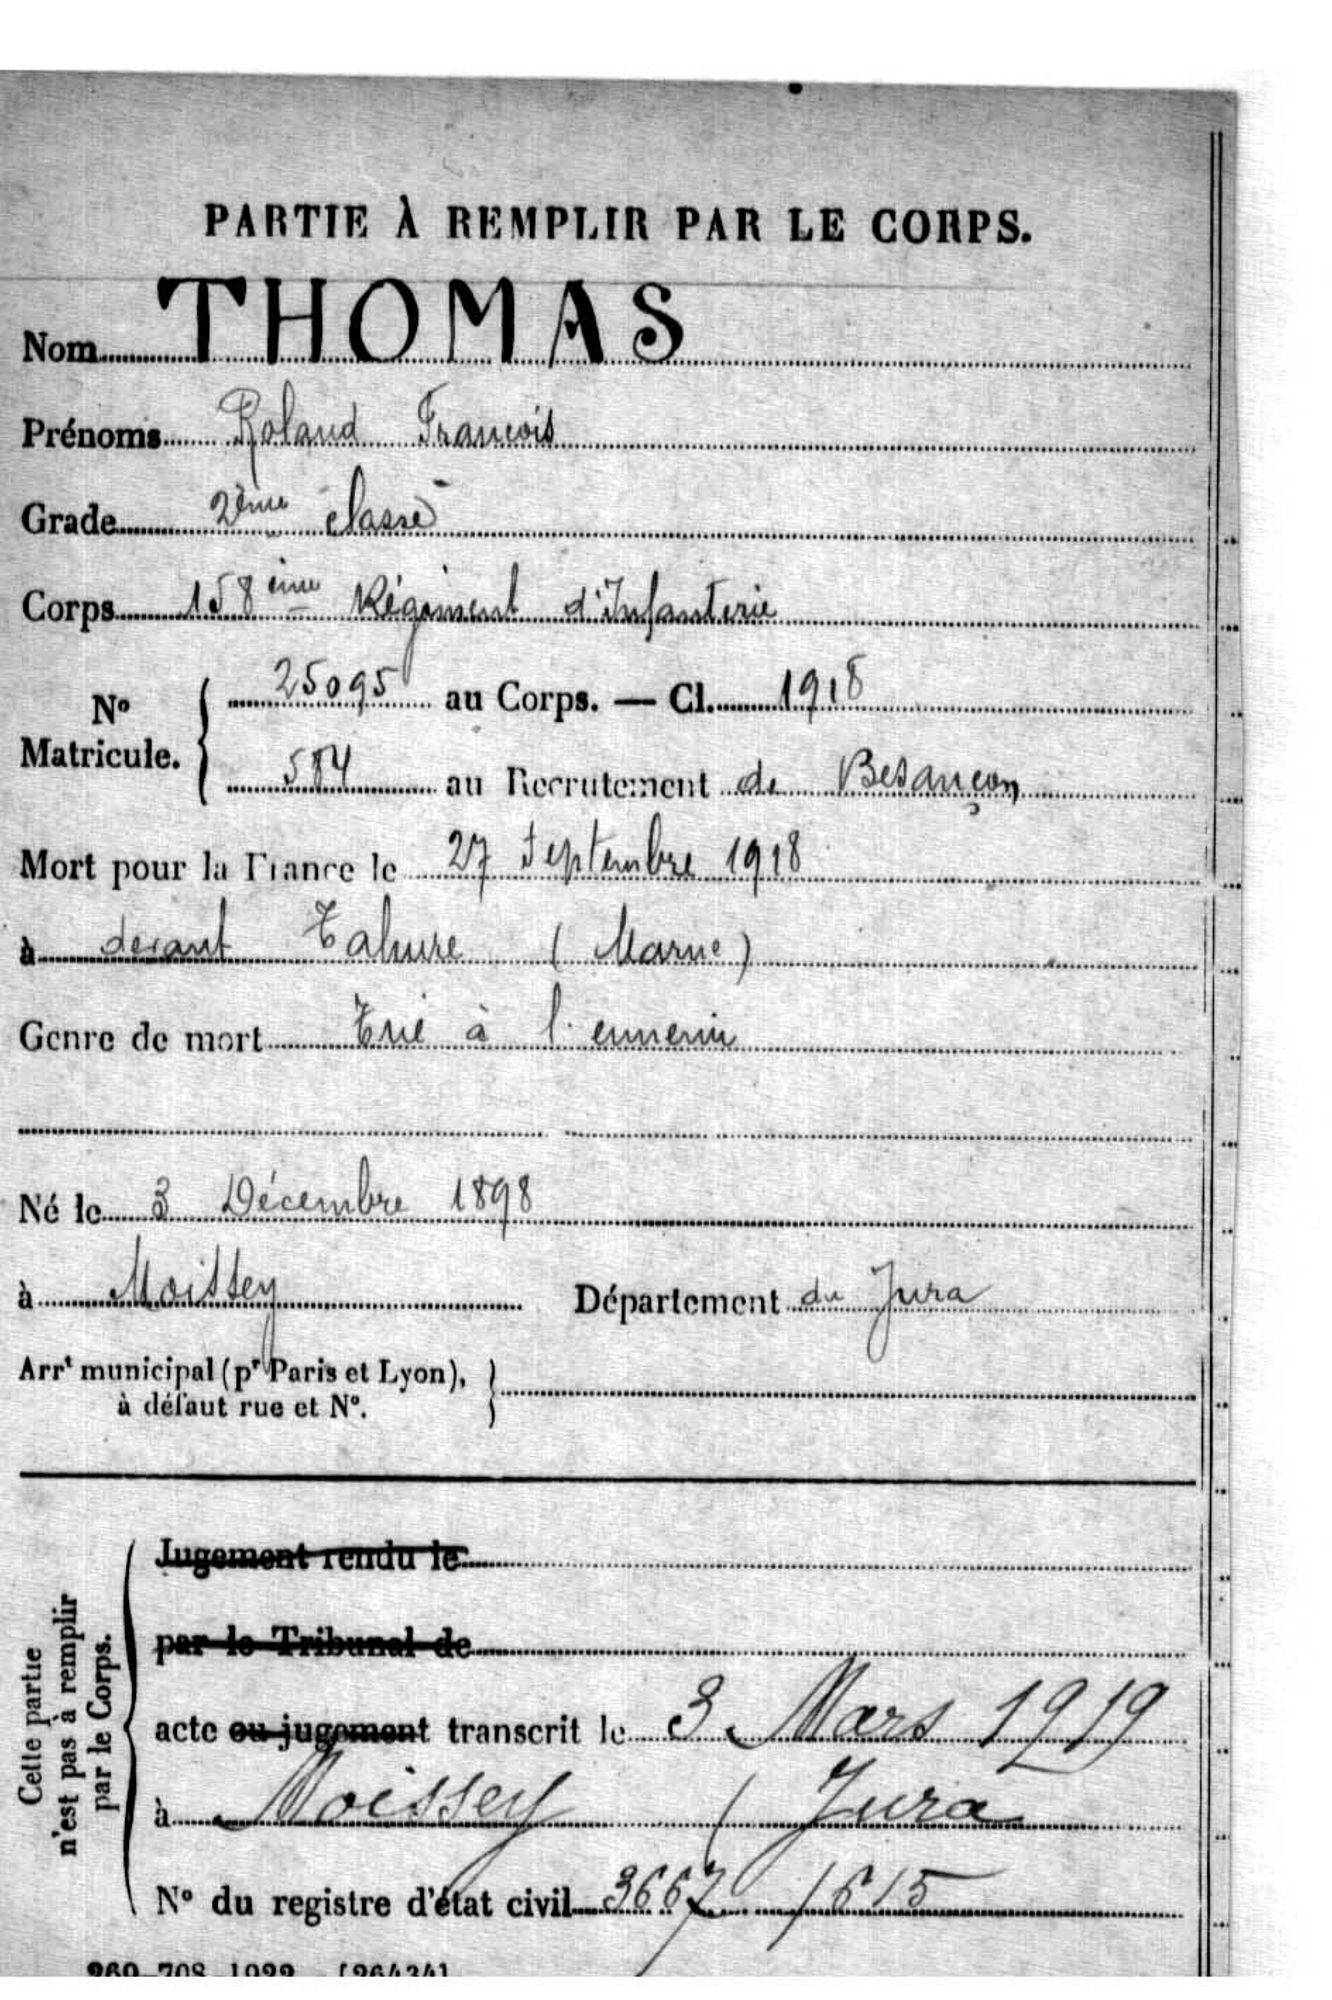 PARTIE À REMPLIR PAR LE CORPS.
Nom THOMAS
Prénoms Roland François
Grade 2ème classe
Corps 158ème Régiment d'Infanterie
No Matricule. { 25095 au Corps. — Cl. 1918
584 au Recrutement de Besançon
Mort pour la France le 27 Septembre 1918
à devant Tahure (Marne)
Genre de mort Tué à l'ennemi
Né le 3 Décembre 1898
à Moissey Département du Jura
Arrt municipal (pr Paris et Lyon),
à défaut rue et No.
Cette partie
n'est pas à remplir
par le Corps.
Jugement rendu le
par le Tribunal de
acte ou jugement transcrit le 3 Mars 1919
à Moissey (Jura
No du registre d'état civil 3667 / 615
260-708-1922. [26434]